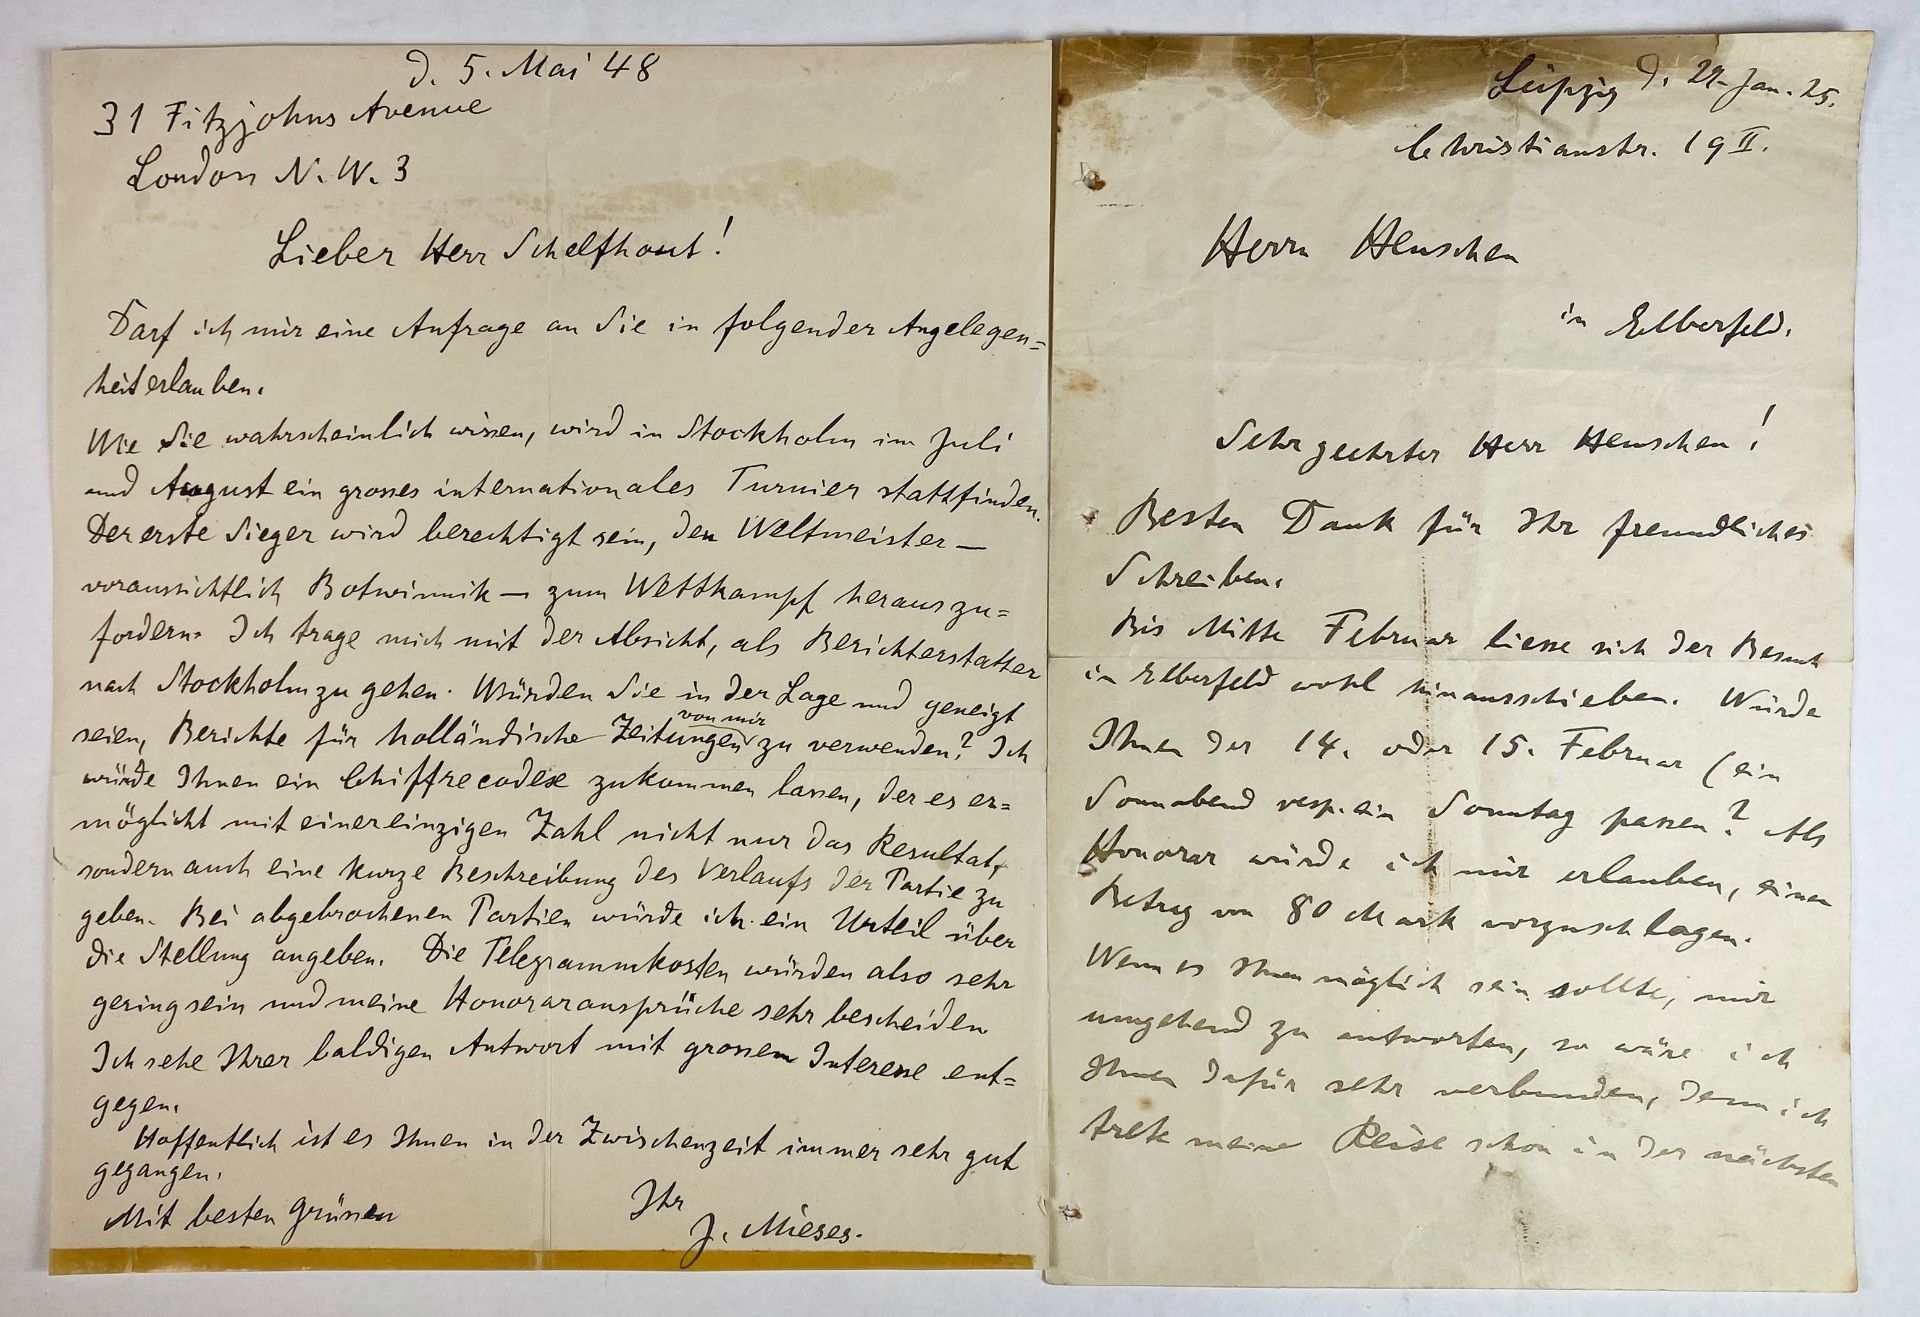 d. 5. Mai 48
31 Fitzjohns Avenue
London N. W. 3
Lieber Herr Schelfhout!
Darf ich mir eine Anfrage an Sie in folgender Angelegen=
heit erlauben.
Wie Sie wahrscheinlich wissen, wird in Stockholm im Juli
und August ein grosses internationales Turnier stattfinden.
Der erste Sieger wird berechtigt sein, den Weltmeister —
voraussichtlich Botwinnik — zum Wettkampf herauszu=
fordern. Ich trage mich mit der Absicht, als Berichterstatter
nach Stockholm zu gehen. Würden Sie in der Lage und geneigt
seien, Berichte für holländische Zeitungen von mir zu verwenden? Ich
würde Ihnen ein Chiffrecodex zukommen lassen, der es er=
möglicht mit einer einzigen Zahl nicht nur das Resultat,
sondern auch eine kurze Beschreibung des Verlaufs der Partie zu
geben. Bei abgebrochenen Partien würde ich ein Urteil über
die Stellung angeben. Die Telegrammkosten würden also sehr
gering sein und meine Honoraransprüche sehr bescheiden
Ich sehe Ihrer baldigen Antwort mit grossem Interesse ent=
gegen.
Hoffentlich ist es Ihnen in der Zwischenzeit immer sehr gut
gegangen.
Mit besten Grüssen
Ihr
J. Mieses.
Leipzig d. 29. Jan. 25.
Christianstr. 19 II.
Herrn Henschen
in Elberfeld.
Sehr geehrter Herr Henschen!
Besten Dank für Ihr freundliches
Schreiben.
Bis Mitte Februar liesse sich der Besuch
in Elberfeld wohl hinausschieben. Würde
Ihnen der 14. oder 15. Februar (ein
Sonnabend resp. ein Sonntag passen? Als
Honorar würde ich mir erlauben, einen
Betrag von 80 Mark vorzuschlagen.
Wenn es Ihnen möglich sein sollte, mir
umgehend zu antworten, so wäre ich
Ihnen dafür sehr verbunden, denn ich
trete meine Reise schon in der nächsten